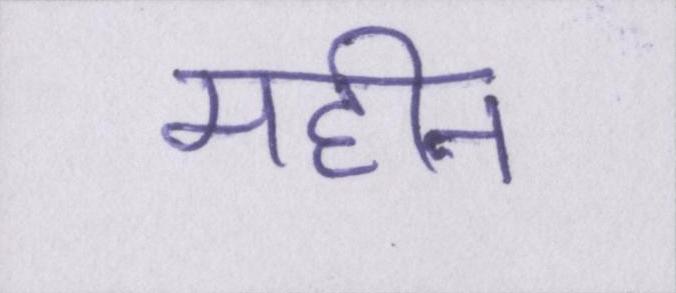 महीन